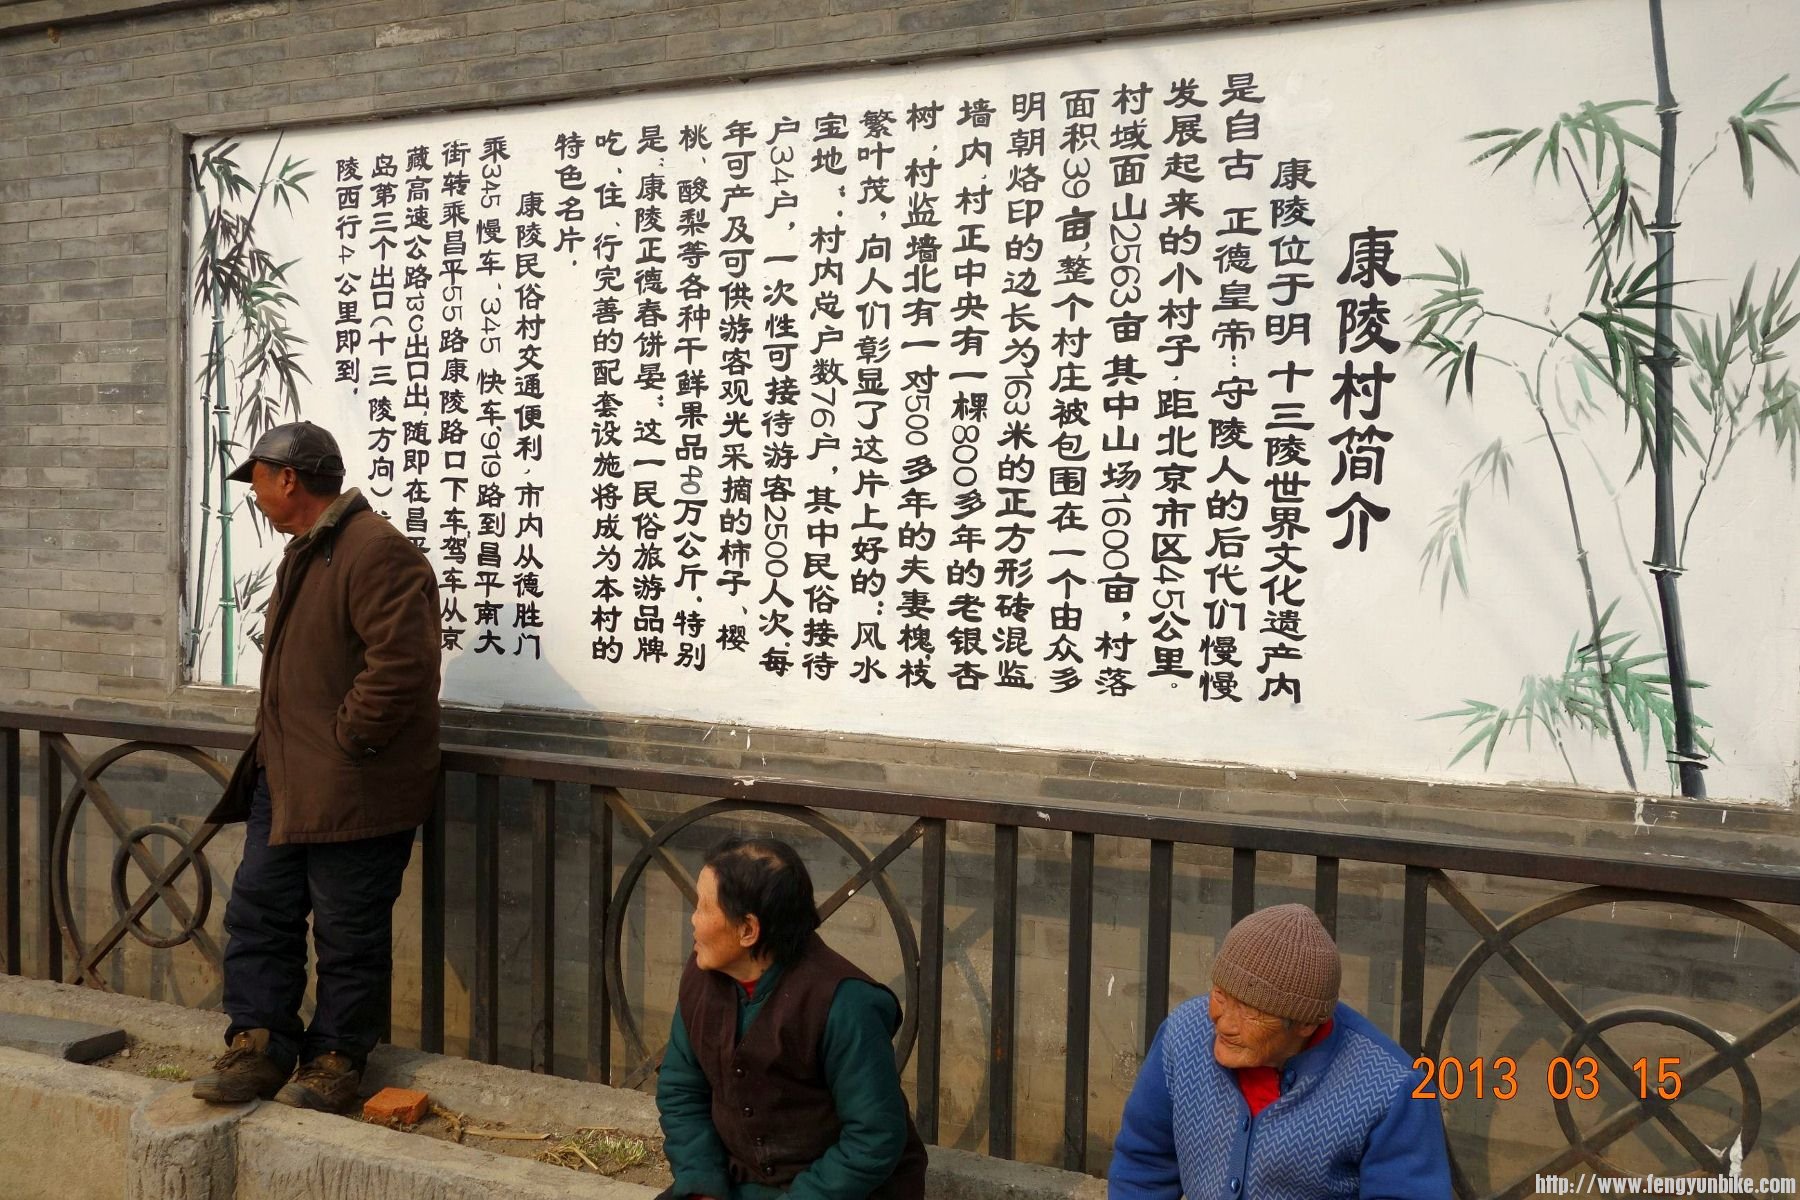 康陵村简介
康陵位于明十三陵世界文化遗产内
是自古 正德皇帝：守陵人的后代们慢慢
发展起来的小村子、距北京市区45公里。
村域面山2563亩其中山场1600亩，村落
面积39亩，整个村庄被包围在一个由众多
明朝烙印的边长为163米的正方形砖混监
墙内、村正中央有一棵800多年的老银杏
树、村监墙北有一对500多年的夫妻槐，枝
繁叶茂，向人们彰显了这片上好的“风水
宝地”。村内总户数76户，其中民俗接待
户34户，一次性可接待游客2500人次，每
年可产及可供游客观光采摘的柿子、樱
桃、酸梨等各种干鲜果品40万公斤，特别
是“康陵正德春饼宴”这一民俗旅游品牌
吃、住、行完善的配套设施将成为本村的
特色名片，
康陵民俗村交通便利、市内从德胜门
乘345慢车“345快车“919路到昌平南大
街转乘昌平55路康陵路口下车”驾车从京
藏高速公路13C出口出，随即在昌平
岛第三个出口（十三陵方向）
陵西行4公里即到，
2013 03 15
http://www.fengyunbike.com